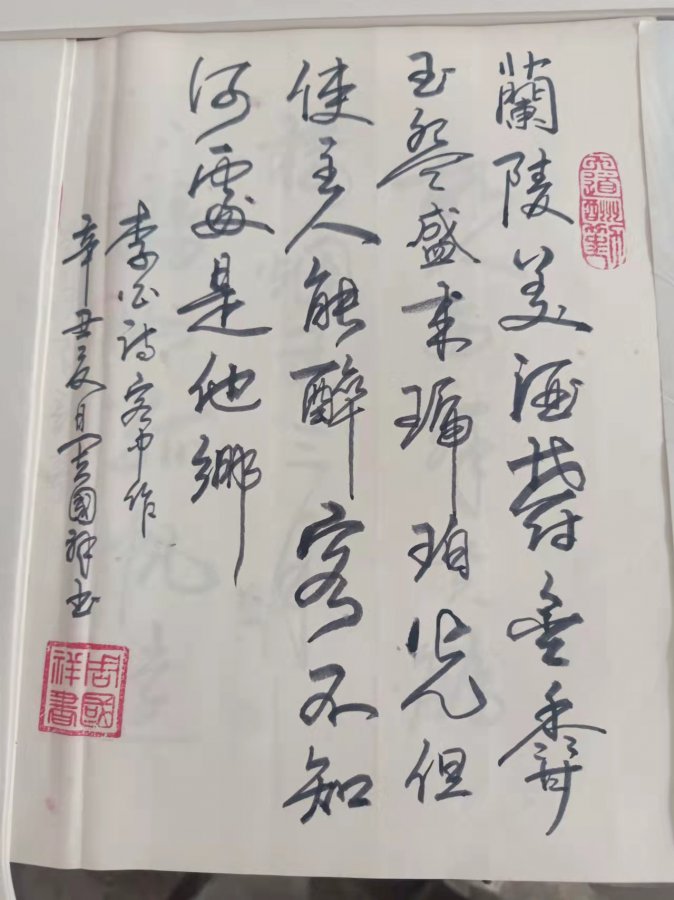 天道酬勤
蘭陵美酒鬱金香
玉盌盛来琥珀光但
使主人能醉客不知
何處是他鄉
李白詩客中作
辛丑夏月周國祥书
周國祥書